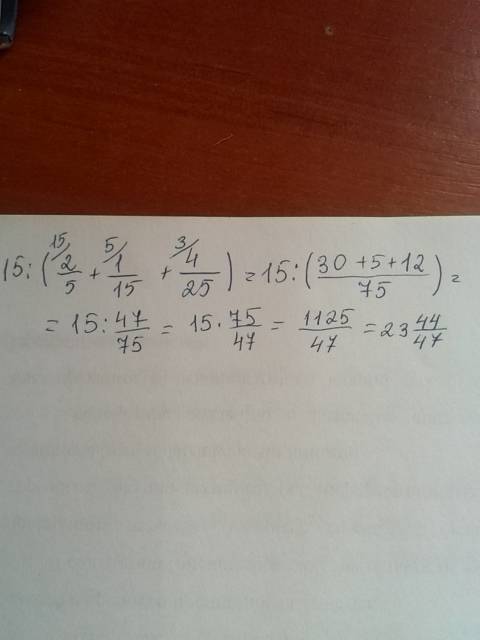 15:(15/ 2/5 + 5/ 1/15 + 3/ 4/25) = 15:((30+5+12)/75) =
= 15:47/75 = 15·75/47 = 1125/47 = 23 44/47